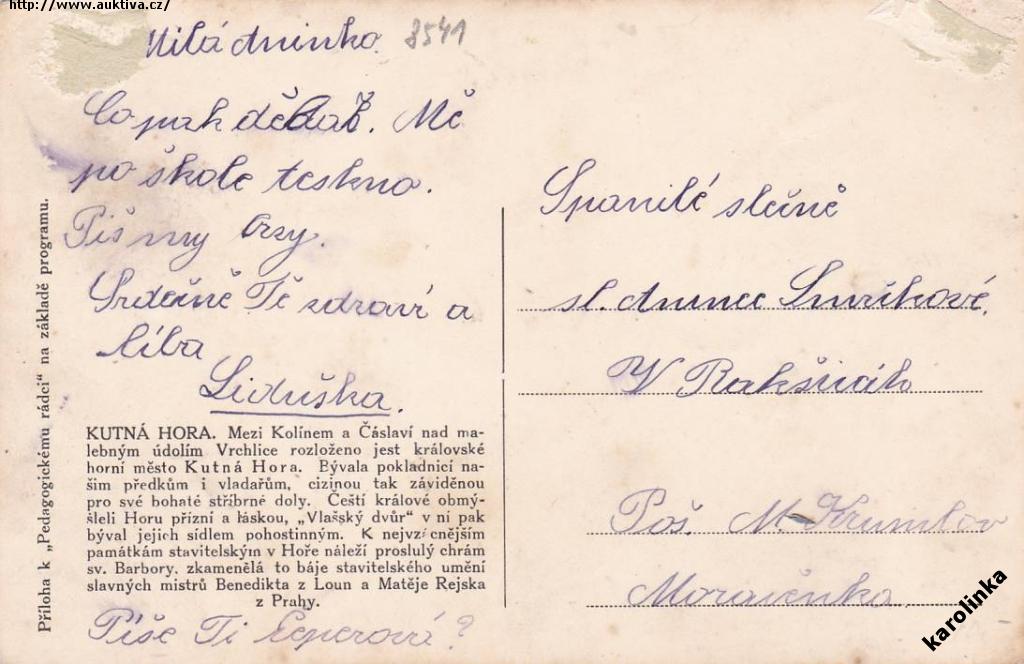 http://www.auktiva.cz/
Milá Aninko. 8541
Co pak děláš. Mě
po škole teskno.
Piš my brzy.
Srdečně Tě zdraví a
líbá
Liduška.
KUTNÁ HORA. Mezi Kolínem a Čáslaví nad ma-
lebným údolím Vrchlice rozloženo jest královské
horní město Kutná Hora. Bývala pokladnicí na-
šim předkům i vladařům, cizinou tak záviděnou
pro své bohaté stříbrné doly. Čeští králové obmý-
šleli Horu přízní a láskou, „Vlašský dvůr" v ní pak
býval jejich sídlem pohostinným. K nejvzácnějším
památkám stavitelským v Hoře náleží proslulý chrám
sv. Barbory, zkamenělá to báje stavitelského umění
slavných mistrů Benedikta z Loun a Matěje Rejska
z Prahy.
Píše Ti ?
Příloha k „Pedagogickému rádci" na základě programu.
Spanilé slečně
sl. Anince Smrčkové
V Rakšicích
Poš. M. Krumlov
Moravěnko.
karolinka